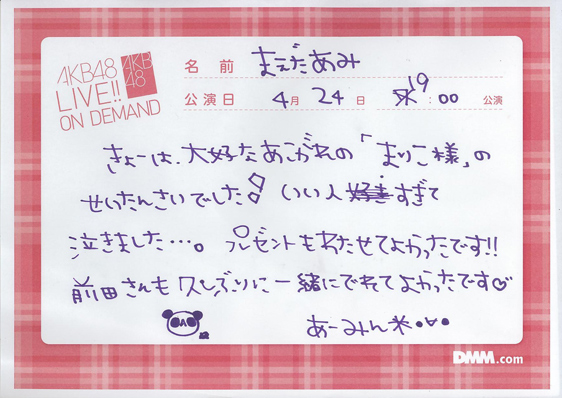 AKB48
LIVE!!
ON DEMAND
AKB
48
名前 まえだあみ
公演日 4月24日 19:00 公演
きょーは、大好なあこがれの「まりこ様」の
せいたんさいでした! いい人すぎて
泣きました…。プレゼントもわたせてよかったです!!
前田さんも久しぶりに一緒にでれてよかったです♡
あーみん米
DMM.com